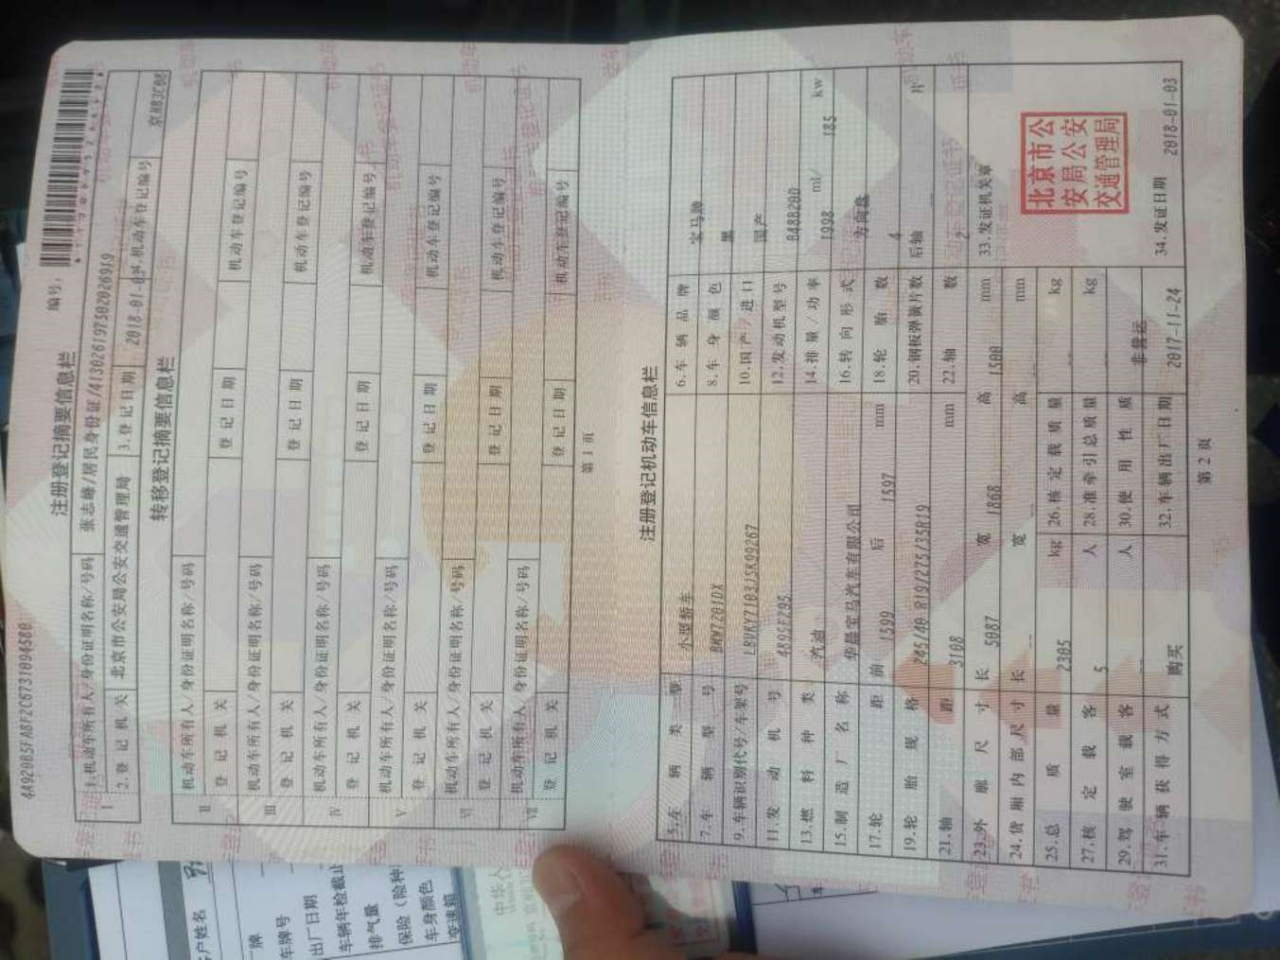 4A92085FA8F2C6731094580
注册登记摘要信息栏
编号:
Ⅰ
1.机动车所有人/身份证明名称/号码 张志峰/居民身份证/413026197502026919
2.登记机关 北京市公安局公安交通管理局 3.登记日期 2018-01-03 4.机动车登记编号
转移登记摘要信息栏
Ⅱ
机动车所有人/身份证明名称/号码
登记机关 登记日期 机动车登记编号
Ⅲ
机动车所有人/身份证明名称/号码
登记机关 登记日期 机动车登记编号
Ⅳ
机动车所有人/身份证明名称/号码
登记机关 登记日期 机动车登记编号
Ⅴ
机动车所有人/身份证明名称/号码
登记机关 登记日期 机动车登记编号
Ⅵ
机动车所有人/身份证明名称/号码
登记机关 登记日期 机动车登记编号
Ⅶ
机动车所有人/身份证明名称/号码
登记机关 登记日期 机动车登记编号
第1页
注册登记机动车信息栏
5.车辆类型 小型轿车 6.车辆品牌 宝马牌
7.车辆型号 BMW7201DX 8.车身颜色 黑
9.车辆识别代号/车架号 LBVKY7103JSK99267 10.国产/进口 国产
11.发动机号 4895F795 12.发动机型号 B48B20D
13.燃料种类 汽油 14.排量/功率 1998 ml/ 185 kw
15.制造厂名称 华晨宝马汽车有限公司 16.转向形式 方向盘
17.轮距 前 1599 后 1597 mm 18.轮胎数 4
19.轮胎规格 245/40 R19/275/35R19 20.钢板弹簧片数 后轴 片
21.轴距 3108 mm 22.轴数 2
23.外廓尺寸 长 5087 宽 1868 高 1500 mm 33.发证机关章
24.货厢内部尺寸 长 宽 高 mm
25.总质量 2305 kg 26.核定载质量 kg
27.核定载客 5 人 28.准牵引总质量 kg
29.驾驶室载客 人 30.使用性质 非营运
31.车辆获得方式 购买 32.车辆出厂日期 2017-11-24 34.发证日期 2018-01-03
北京市公
安局公安
交通管理局
第2页
客户姓名
车牌号
出厂日期
车辆年检截止
排气量
保险(险种
车身颜色
变速箱